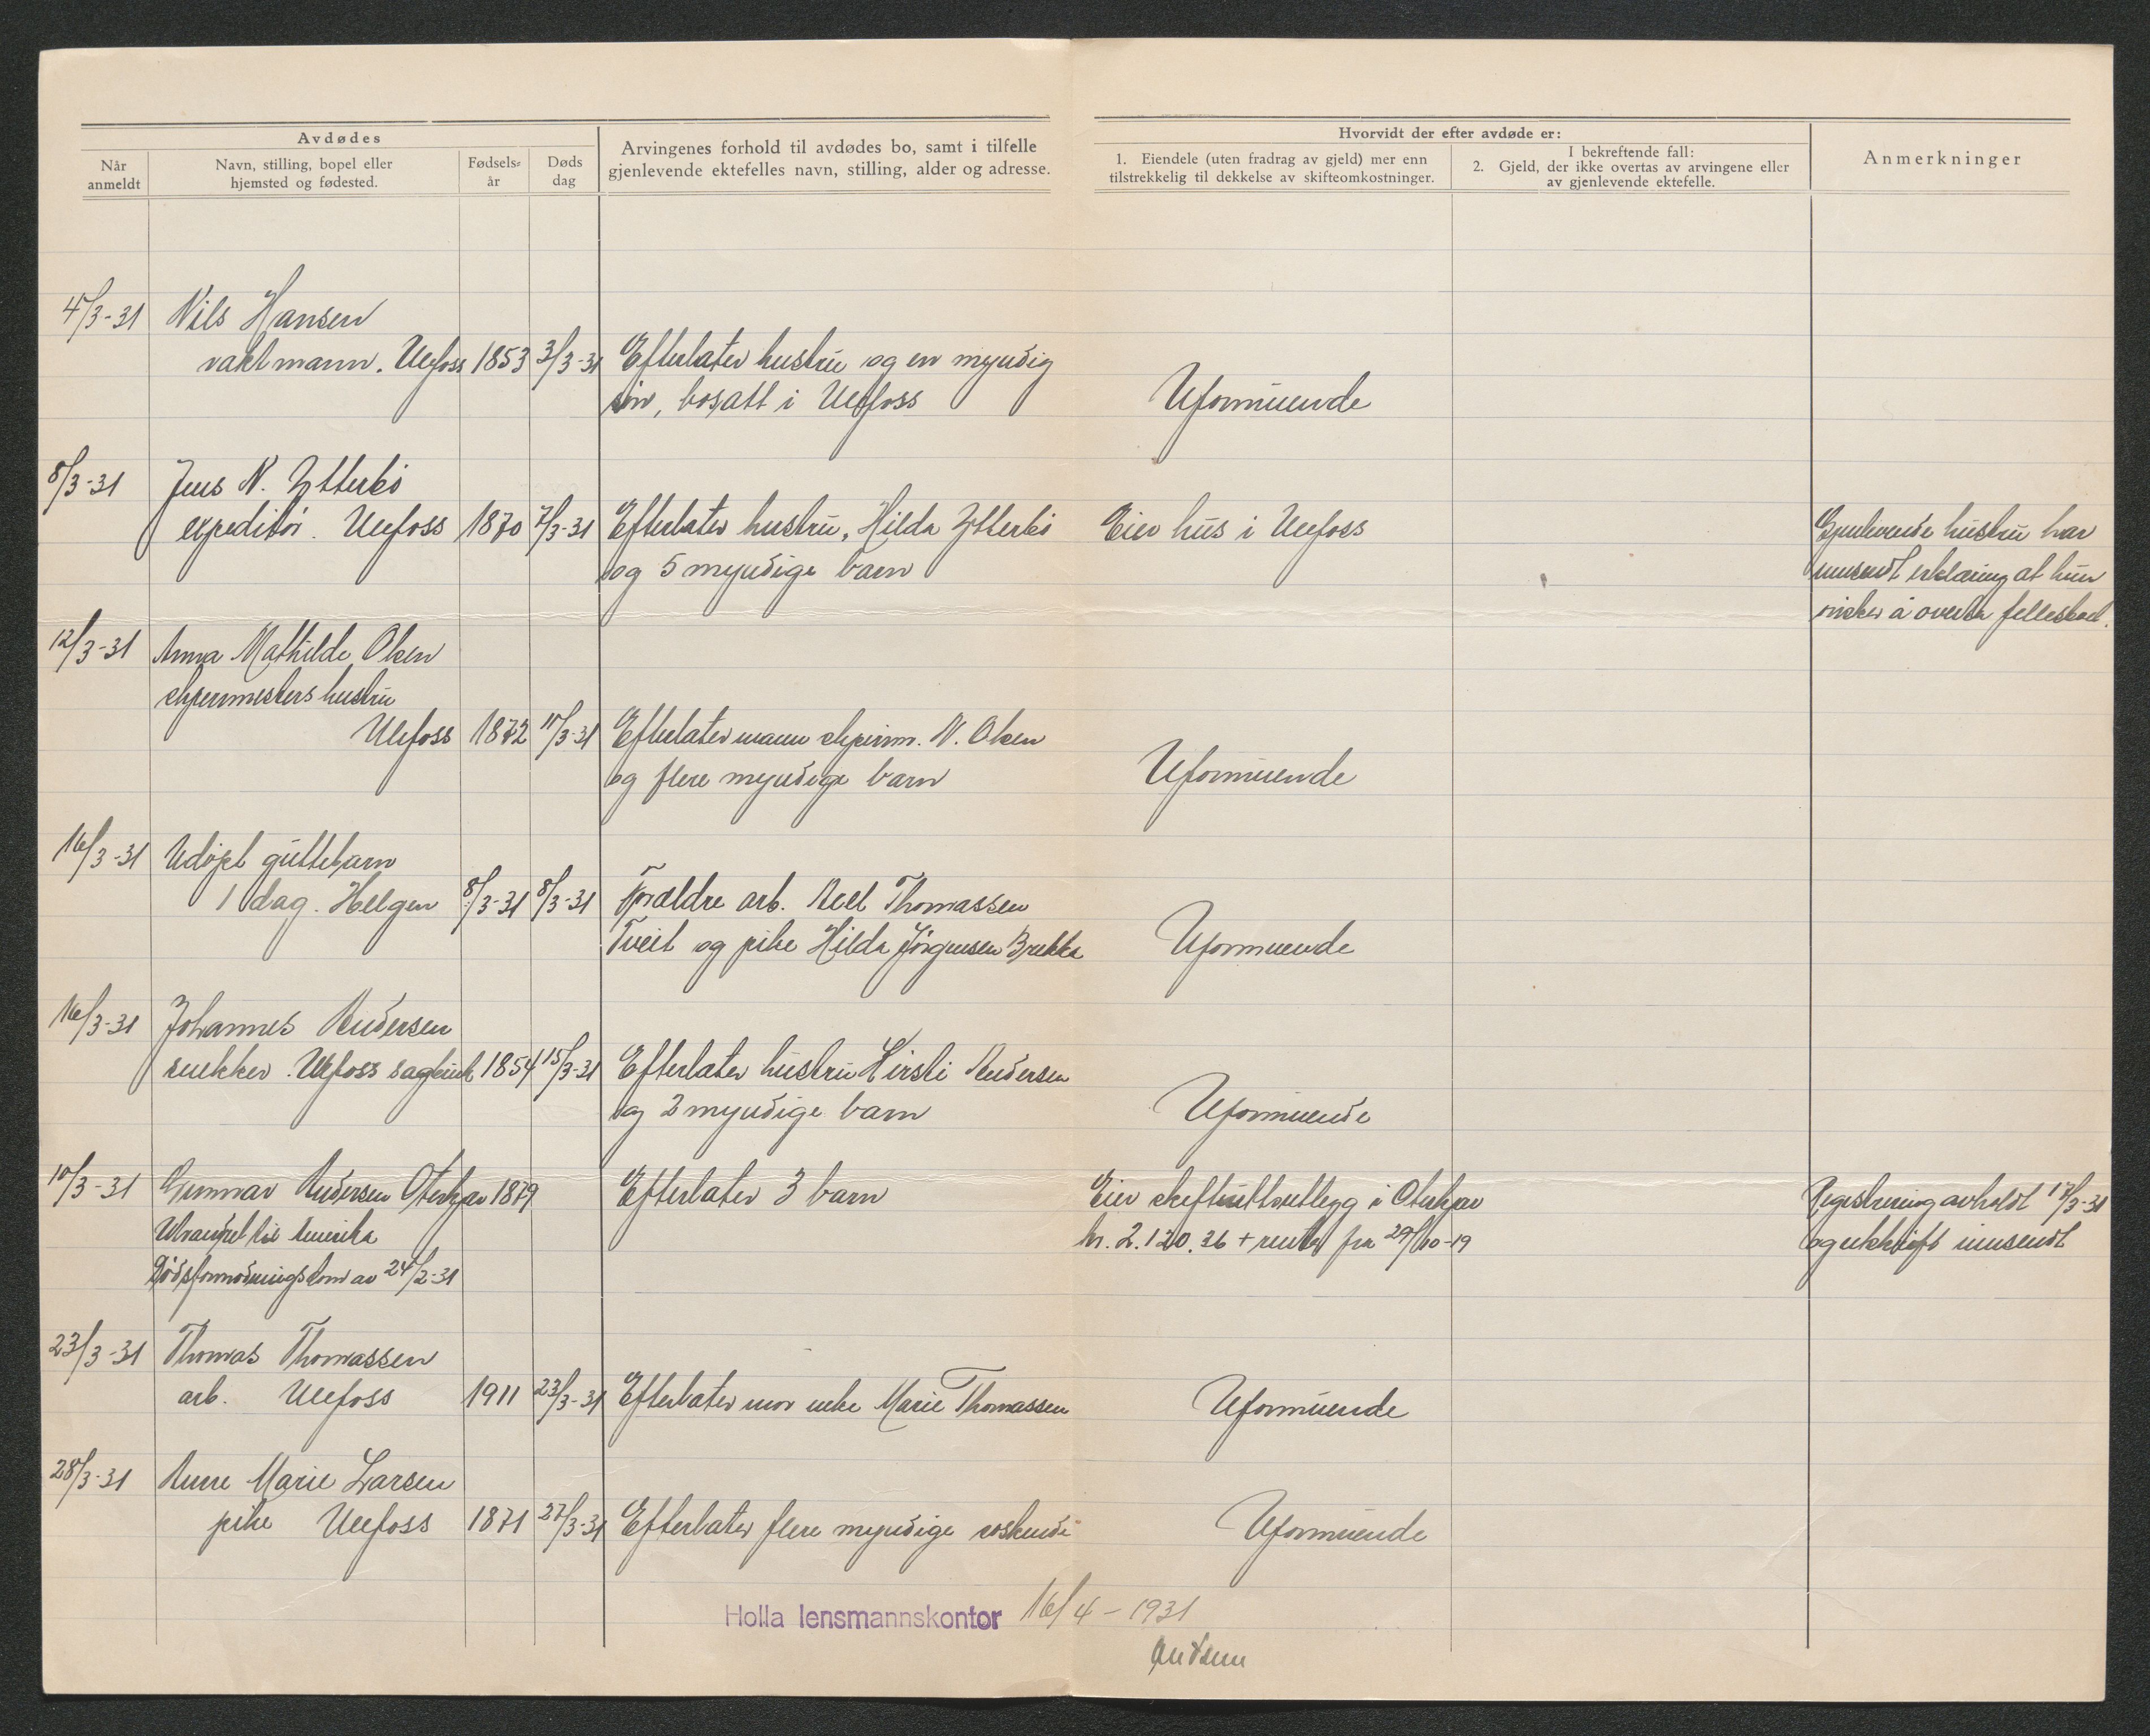 Avdødes
Når anmeldt
Navn, stilling, bopel eller hjemsted og fødested.
Fødsels-år
Døds dag
Arvingenes forhold til avdødes bo, samt i tilfelle
gjenlevende ektefelles navn, stilling, alder og adresse.
Hvorvidt der efter avdøde er:
1. Eiendele (uten fradrag av gjeld) mer enn
tilstrekkelig til dekkelse av skifteomkostninger.
I bekreftende fall:
2. Gjeld, der ikke overtas av arvingene eller
av gjenlevende ektefelle.
Anmerkninger
4/3-31 Nils Hansen
vaktmann. Ulefoss 1853 3/3-31 Efterlater hustru og en myndig
sön, bosatt i Ulefoss Uformuende
8/3-31 Jens N. Ytterbö
expeditör. Ulefoss 1870 7/3-31 Efterlater hustru, Hilda Ytterbö Eier hus i Ulefoss Gjenlevende hustru har
og 5 myndige barn innsendt erklæring at hun
önsker å overta fellesboet.
12/3-31 Anna Mathilde Olsen
skipermesters hustru
Ulefoss 1872 11/3-31 Efterlater mann skiperm. N. Olsen
og flere myndige barn Uformuende
16/3-31 Udöpt guttebarn
1 dag. Helgen 8/3-31 8/3-31 Forældre arb. Axel Thomassen
Tveit og pike Hilda Jörgensen Brekka Uformuende
16/3-31 Johannes Andersen
snekker. Ulefoss sagbruk 1854 15/3-31 Efterlater hustru Kirsti Andersen
og 2 myndige barn Uformuende
10/3-31 Gunnar Andersen Oterkjær 1879 Efterlater 3 barn Eier skifteutlegg i Oterkjær Registrering avholdt 17/3-31
Utvandret til Amerika kr. 2.120.36 + renter fra 29/10-19 og utskrift innsendt
Dödsformodningsdom av 24/2-31
23/3-31 Thomas Thomassen
arb. Ulefoss 1911 23/3-31 Efterlater mor enke Marie Thomassen Uformuende
28/3-31 Anne Marie Larsen
pike Ulefoss 1871 27/3-31 Efterlater flere myndige söskende Uformuende
Holla lensmannskontor 16/4-1931